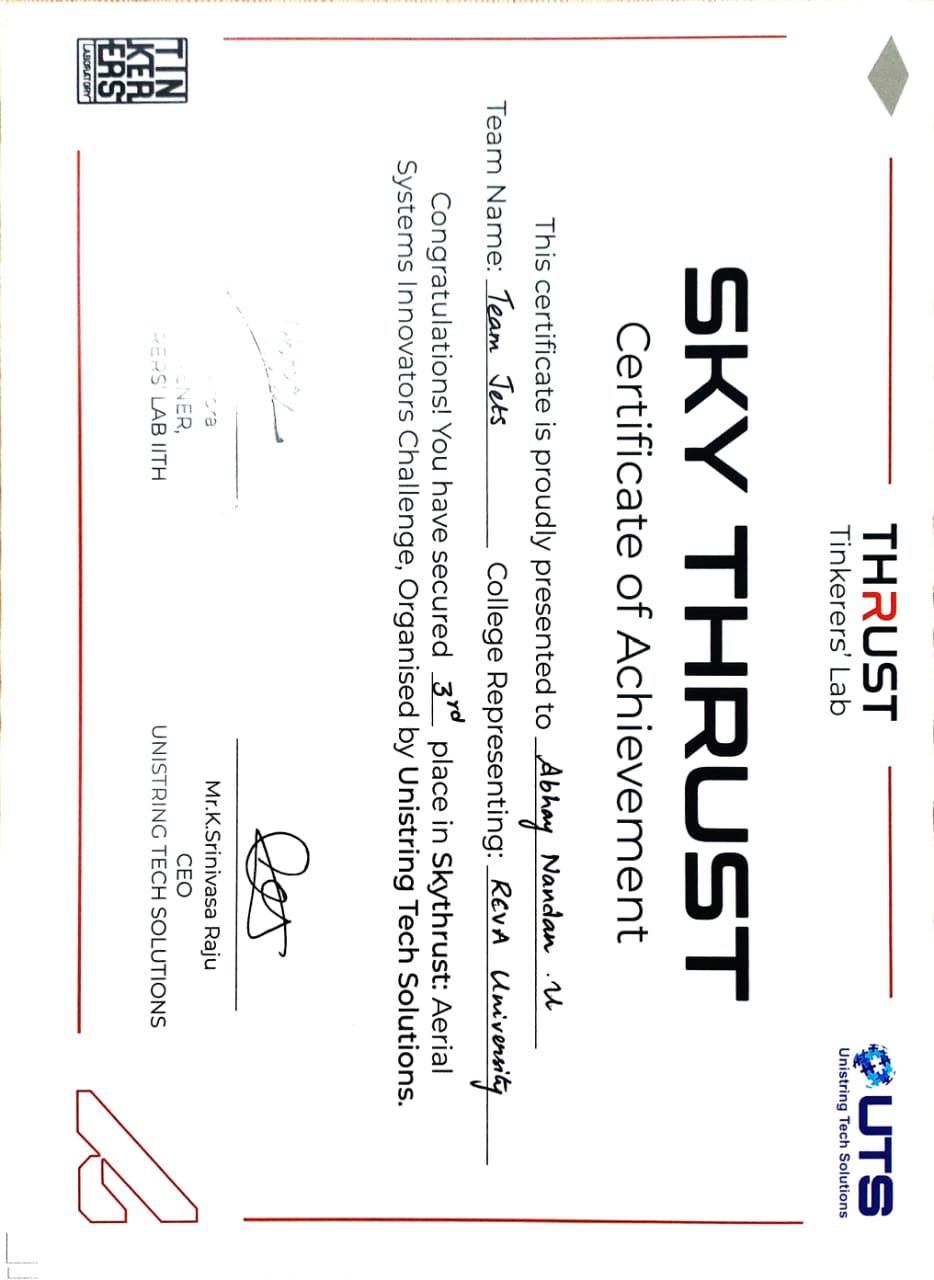 THRUST
Tinkerers' Lab
UTS
Unistring Tech Solutions
SKY THRUST
Certificate of Achievement
This certificate is proudly presented to Abhay Nandan .U
Team Name: Team Jets College Representing: REVA University
Congratulations! You have secured 3rd place in Skythrust: Aerial
Systems Innovators Challenge, Organised by Unistring Tech Solutions.
Mr.K.Srinivasa Raju
LAB IITH
CEO
UNISTRING TECH SOLUTIONS
TIN
KER
ERS
LABORATORY